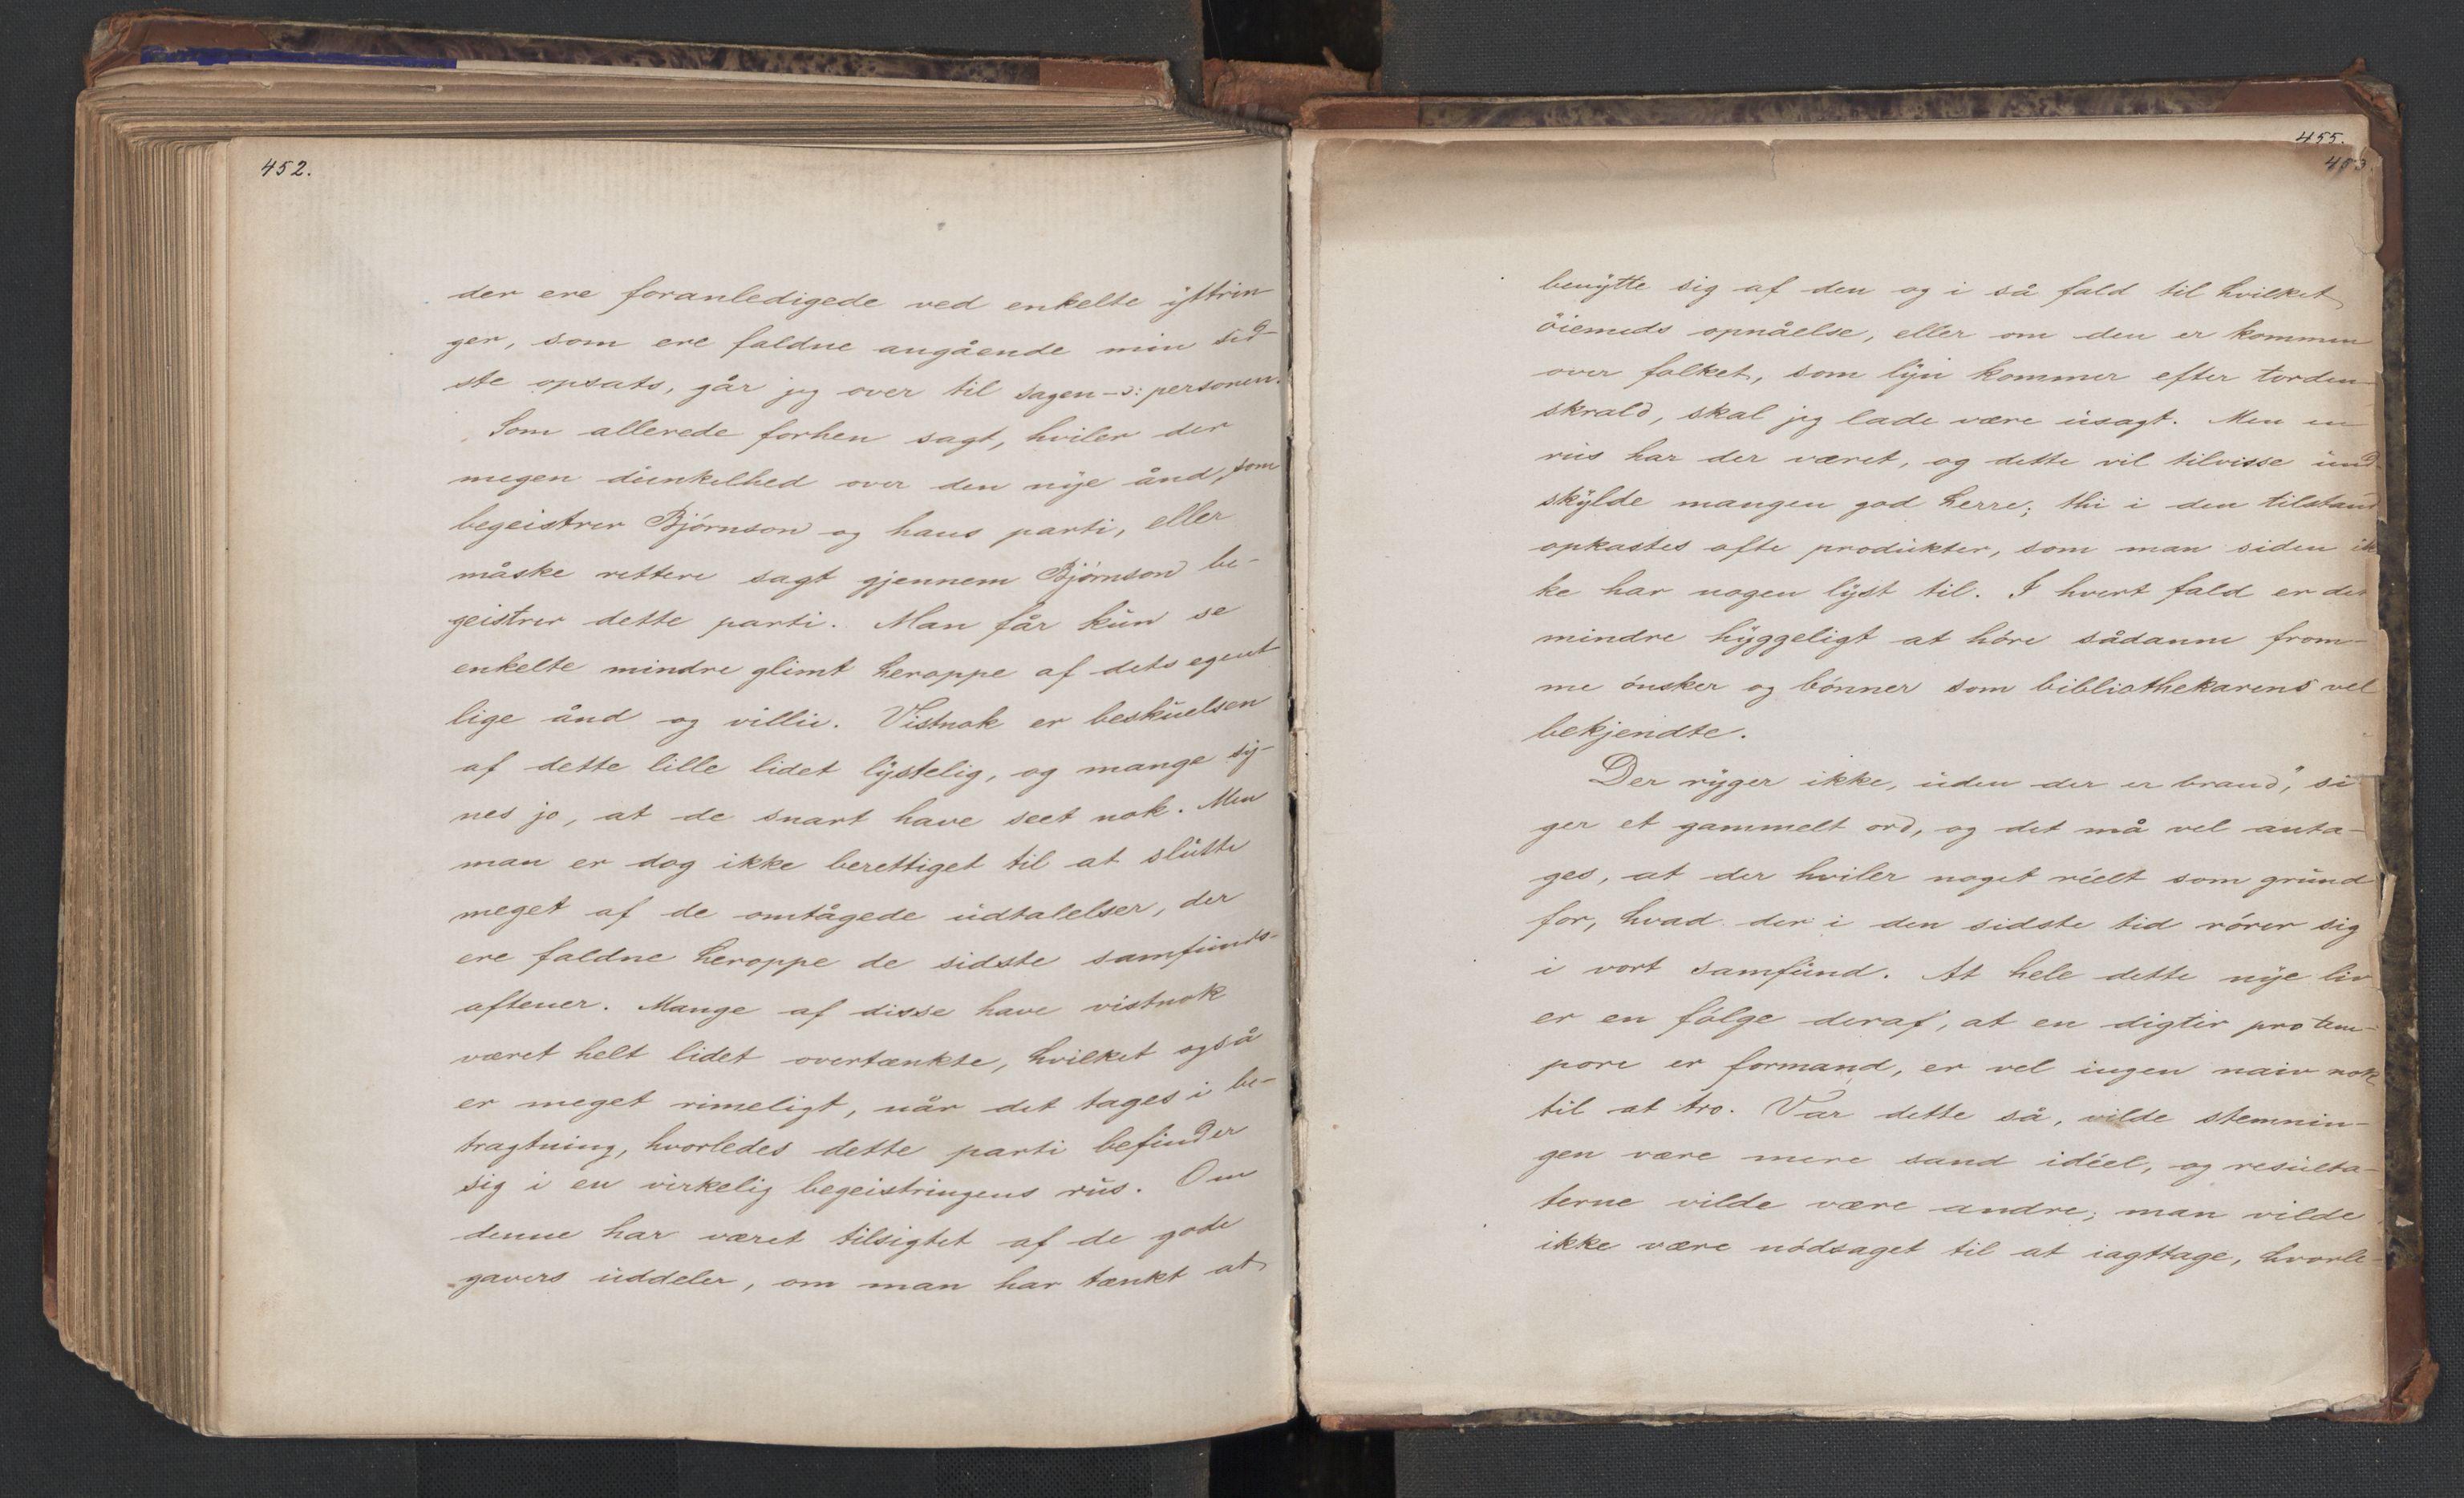 452.
der ere foranledigede ved enkelte yttrin
ger, som ere faldne angående min sid-
ste opsats, går jeg over til sagen - ɔ: personen.
Som allerede forhen sagt, hviler der
megen dunkelhed over den nye ånd, som
begeistrer Bjørnson og hans parti, eller
måske rettere sagt gjennem Bjørnson be-
geistrer dette parti. Man får kun se
enkelte mindre glimt heroppe af dets egent
lige ånd og villie. Vistnok er beskuelsen
af dette lille lidet lystelig, og mange sy-
nes jo, at de snart have seet nok. Men
man er dog ikke berettiget til at slutte
meget af de omtågede udtalelser, der
ere faldne heroppe de sidste samfunds-
aftener. Mange af disse have vistnok
været helt lidet overtænkte, hvilket også
er meget rimeligt, når det tages i be-
tragtning, hvorledes dette parti befinder
sig i en virkelig begeistringens rus. Om
denne har været tilsigtet af de gode
gavers uddeler, om man har tænkt at
455.
453.
benytte sig af den og i så fald til hvilket
öiemeds opnåelse, eller om den er kommen
over folket, som lyn kommer efter torden-
skrald, skal jeg lade være usagt. Men en
rus har der været, og dette vil tilvisse und
skylde mangen god herre; thi i den tilstand
opkastes ofte produkter, som man siden ik
ke har nogen lyst til. I hvert fald er det
mindre hyggeligt at høre sådanne from-
me ønsker og bønner som bibliothekarens vel
bekjendte.
Der ryger ikke, uden der er brand", si
ger et gammelt ord, og det må vel anta-
ges, at der hviler noget réelt som grund
for, hvad der i den sidste tid rører sig
i vort samfund. At hele dette nye liv
er en følge deraf, at en digter pro tem-
pore er formand, er vel ingen naiv nok
til at tro. Var dette så, vilde stemnin-
gen være mere sand idéel, og resulta-
terne vilde være andre; man vilde
ikke være nødsaget til at iagttage, hvorle-